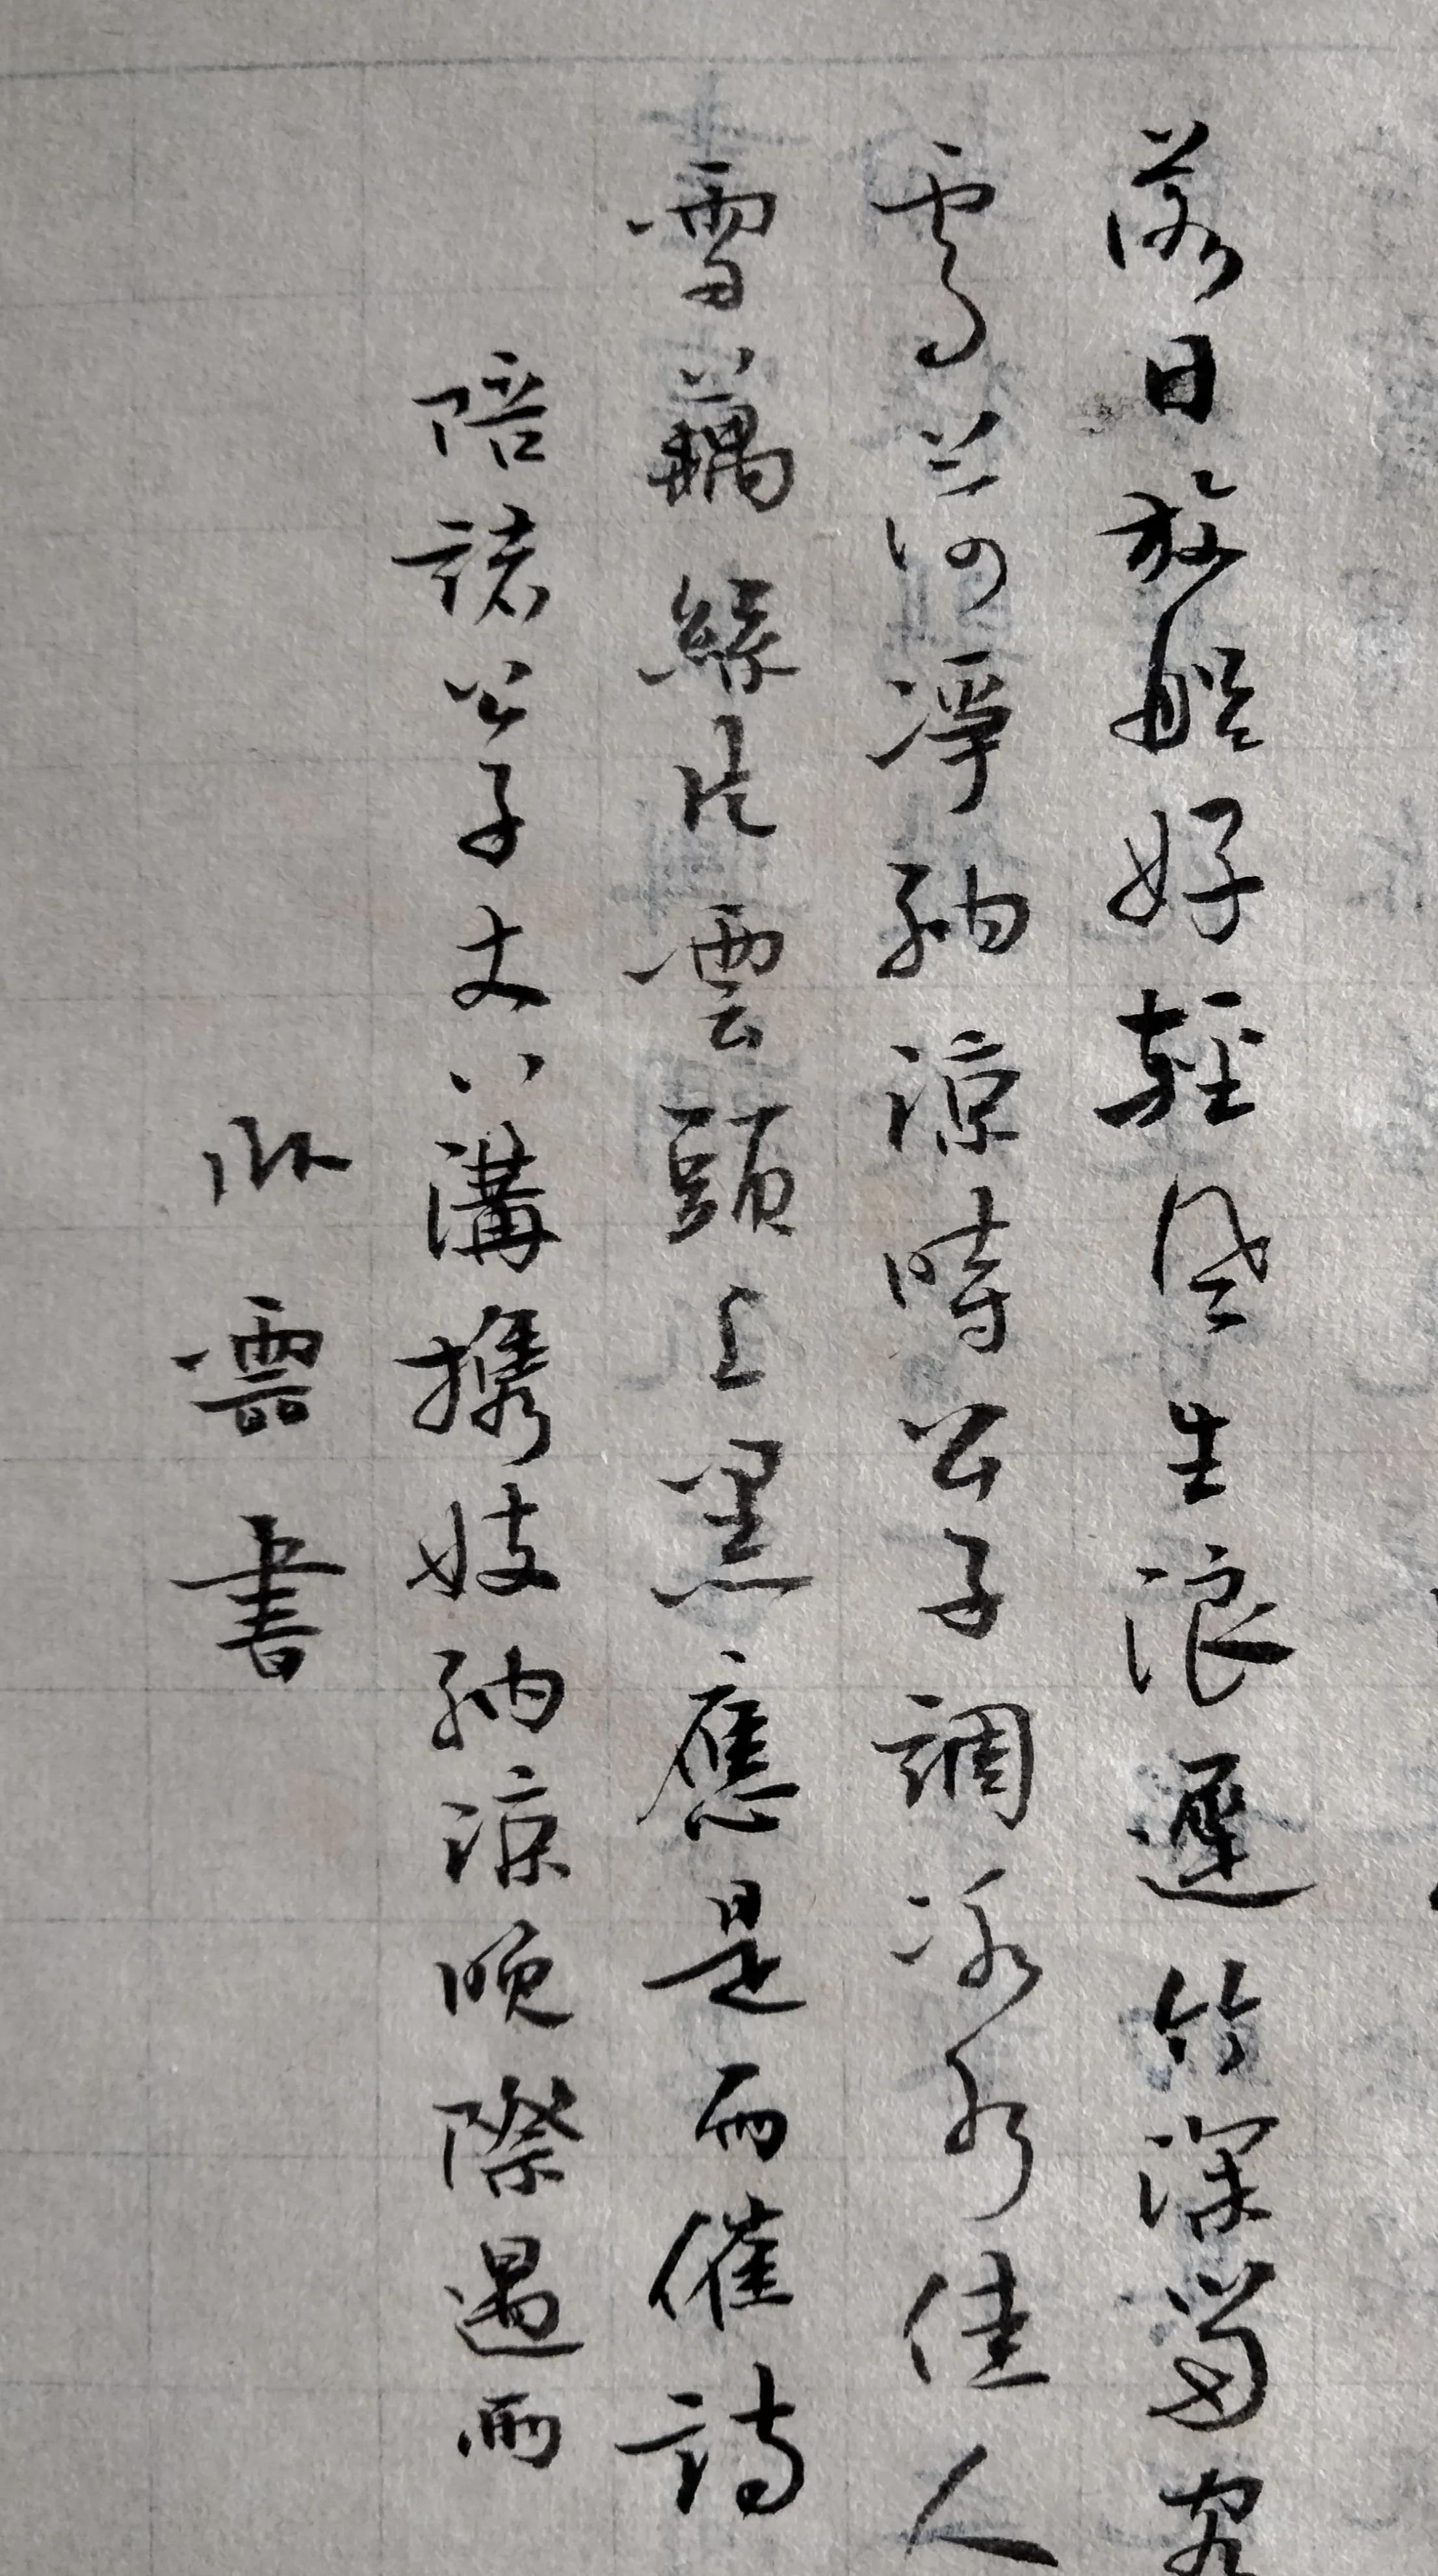 落日放船好輕風生浪遲竹深留客
處荷淨納涼時公子調冰水佳人
雪藕絲片雲頭上黑應是雨催詩
陪諸公子丈八溝携妓納涼晚際遇雨
書